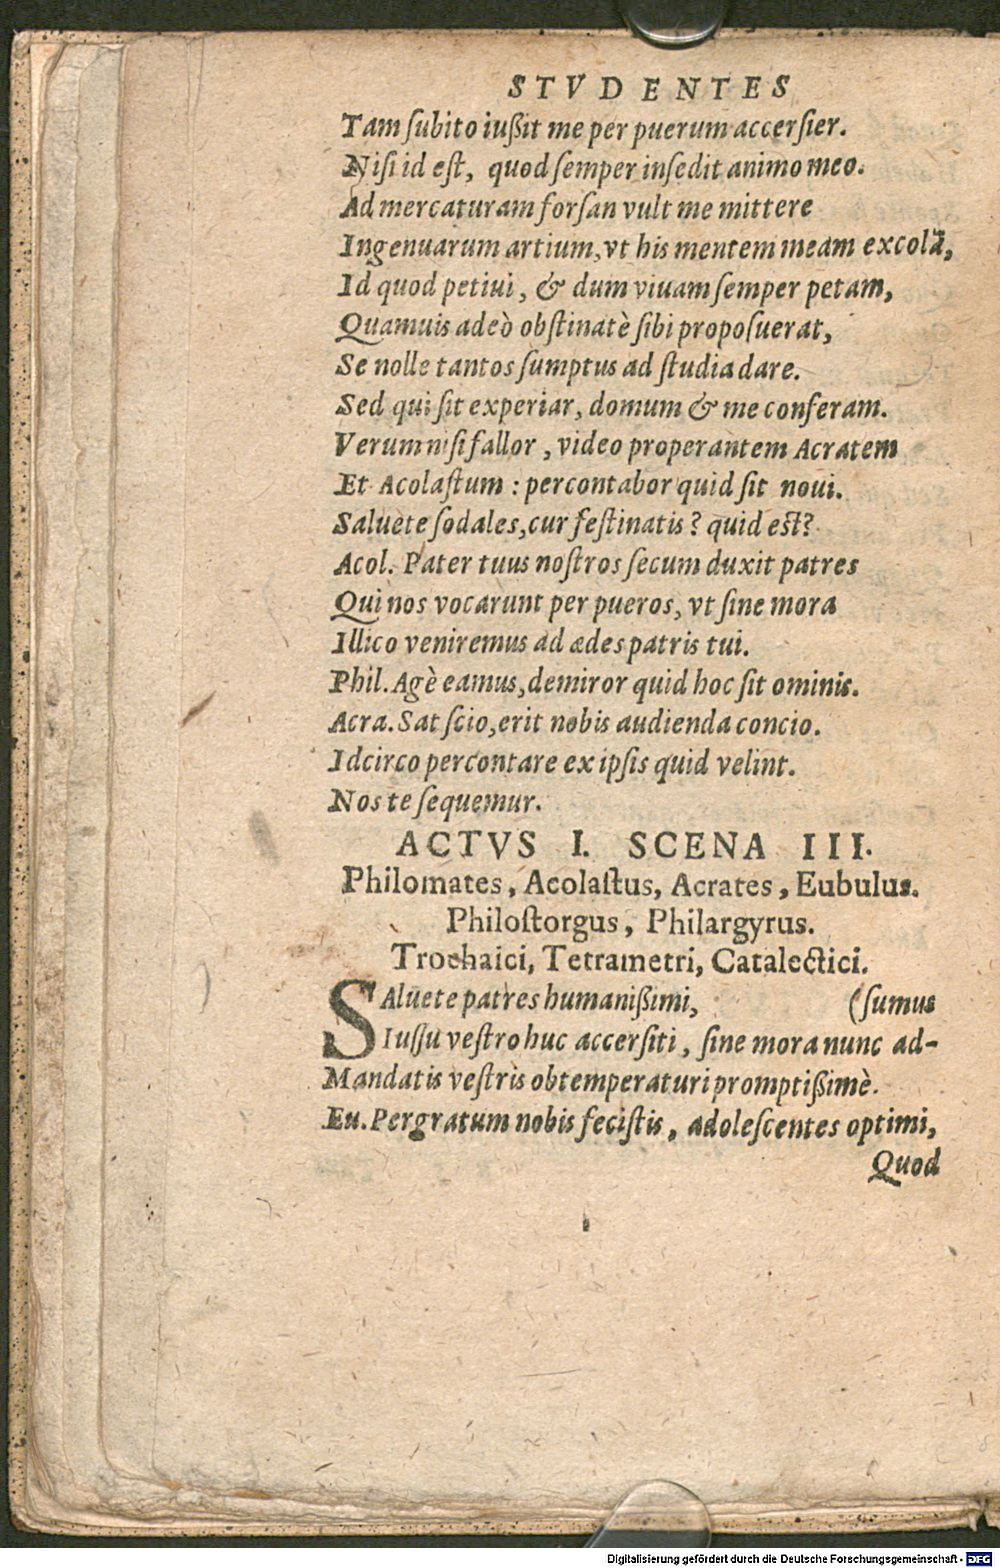 STVDENTES
Tam ſubito iußit me per puerum accerſier.
Niſi id eſt, quod ſemper inſedit animo meo.
Ad mercaturam forſan vult me mittere
Ingenuarum artium, vt his mentem meam excolã,
Id quod petiui, & dum viuam ſemper petam,
Quamuis adeò obſtinatè ſibi propoſuerat,
Se nolle tantos ſumptus ad ſtudia dare.
Sed qui ſit experiar, domum & me conferam.
Verum niſi fallor, video properantem Acratem
Et Acolaſtum: percontabor quid ſit noui.
Saluete ſodales, cur feſtinatis? quid eſt?
Acol. Pater tuus noſtros ſecum duxit patres
Qui nos vocarunt per pueros, vt ſine mora
Illico veniremus ad ædes patris tui.
Phil. Agè eamus, demiror quid hoc ſit ominis.
Acra. Sat ſcio, erit nobis audienda concio.
Idcirco percontare ex ipſis quid velint.
Nos te ſequemur.
ACTVS I. SCENA III.
Philomates, Acolaſtus, Acrates, Eubulus.
Philoſtorgus, Philargyrus.
Trochaici, Tetrametri, Catalectici.
SAluete patres humanißimi, (ſumus
Iuſſu veſtro huc accerſiti, ſine mora nunc ad-
Mandatis veſtris obtemperaturi promptißimè.
Eu. Pergratum nobis feciſtis, adoleſcentes optimi,
Quod
Digitalisierung gefördert durch die Deutsche Forschungsgemeinschaft - DFG